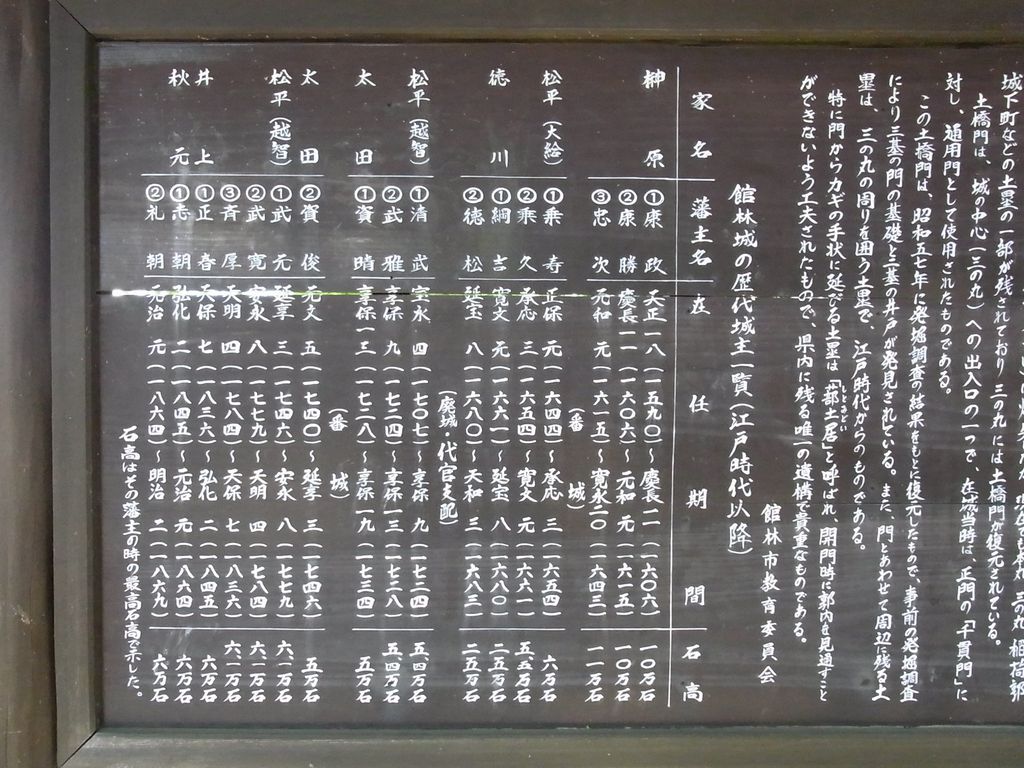 城下町などの土塁の一部が残されており、三の丸には土橋門が復元されている。
土橋門は、城の中心(三の丸)への出入口の一つで、在城当時は、正門の「千貫門」に
対し、通用門として使用されたものである。
この土橋門は、昭和五七年に発掘調査の結果をもとに復元したもので、事前の発掘調査
により三基の門の基礎と一基の井戸が発見されている。また、門とあわせて周辺に残る土
塁は、三の丸の周りを囲う土塁で、江戸時代からのものである。
特に門からカギの手状に延びる土塁は「蔀土居」と呼ばれ、開門時に郭内を見通すこと
ができないよう工夫されたもので、県内に残る唯一の遺構で貴重なものである。
館林市教育委員会
館林城の歴代城主一覧(江戸時代以降)
家名 藩主名 在任期間 石高
榊原 ①康政 天正一八(一五九〇)~慶長一一(一六〇六) 一〇万石
②康勝 慶長一一(一六〇六)~元和元(一六一五) 一〇万石
③忠次 元和元(一六一五)~寛永二〇(一六四三) 一一万石
(番城)
松平(大給) ①乗寿 正保元(一六四四)~承応三(一六五四) 六万石
②乗久 承応三(一六五四)~寛文元(一六六一) 五五万石
徳川 ①綱吉 寛文元(一六六一)~延宝八(一六八〇) 二五万石
②徳松 延宝八(一六八〇)~天和三(一六八三) 二五万石
(廃城・代官支配)
松平(越智) ①清武 宝永四(一七〇七)~享保九(一七二四) 五四万石
②武雅 享保九(一七二四)~享保一三(一七二八) 五四万石
太田 ①資晴 享保一三(一七二八)~享保一九(一七三四) 五万石
(番城)
太田 ②資俊 元文五(一七四〇)~延享三(一七四六) 五万石
松平(越智) ①武元 延享三(一七四六)~安永八(一七七九) 六一万石
②武寛 安永八(一七七九)~天明四(一七八四) 六一万石
③斉厚 天明四(一七八四)~天保七(一八三六) 六一万石
井上 ①正春 天保七(一八三六)~弘化二(一八四五) 六万石
秋元 ①志朝 弘化二(一八四五)~元治元(一八六四) 六万石
②礼朝 元治元(一八六四)~明治二(一八六九) 六万石
石高はその藩主の時の最高石高を示した。